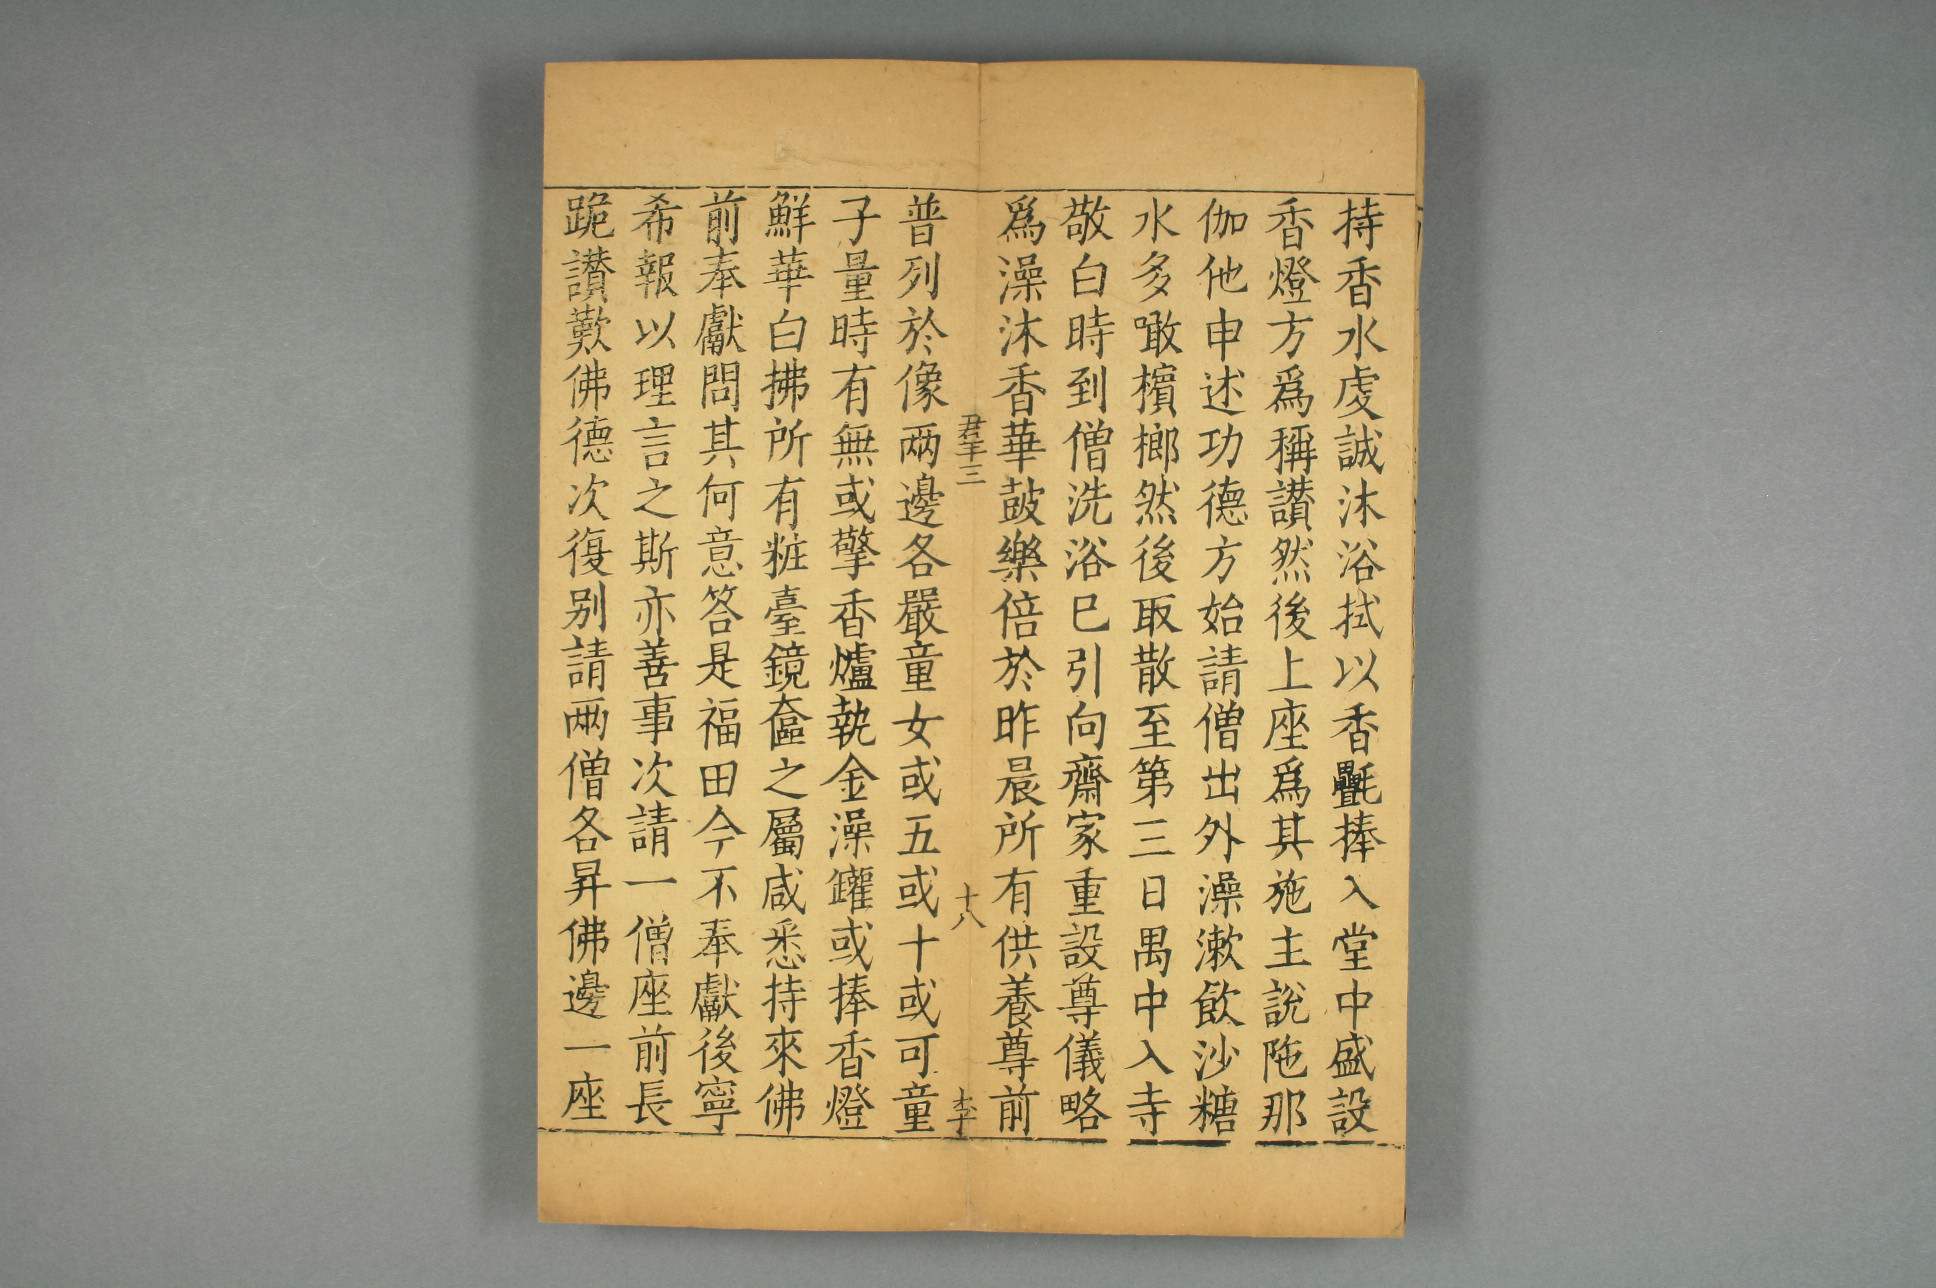 持香水虔誠沐浴拭以香㲲捧入堂中盛設
香燈方爲稱讃然後上座爲其施主說陁那
伽他申述功德方始請僧出外澡漱飲沙糖
水多噉檳榔然後取散至第三日禺中入寺
敬白時到僧洗浴已引向齋家重設尊儀略
爲澡沐香華皷樂倍於昨晨所有供養尊前
君羊三 十八 李
普列於像兩邊各嚴童女或五或十或可童
子量時有無或擎香爐執金澡鑵或捧香燈
鮮華白拂所有粧臺鏡奩之屬咸悉持來佛
前奉獻問其何意答是福田今不奉獻後寧
希報以理言之斯亦善事次請一僧座前長
跪讃歎佛德次復别請兩僧各昇佛邊一座